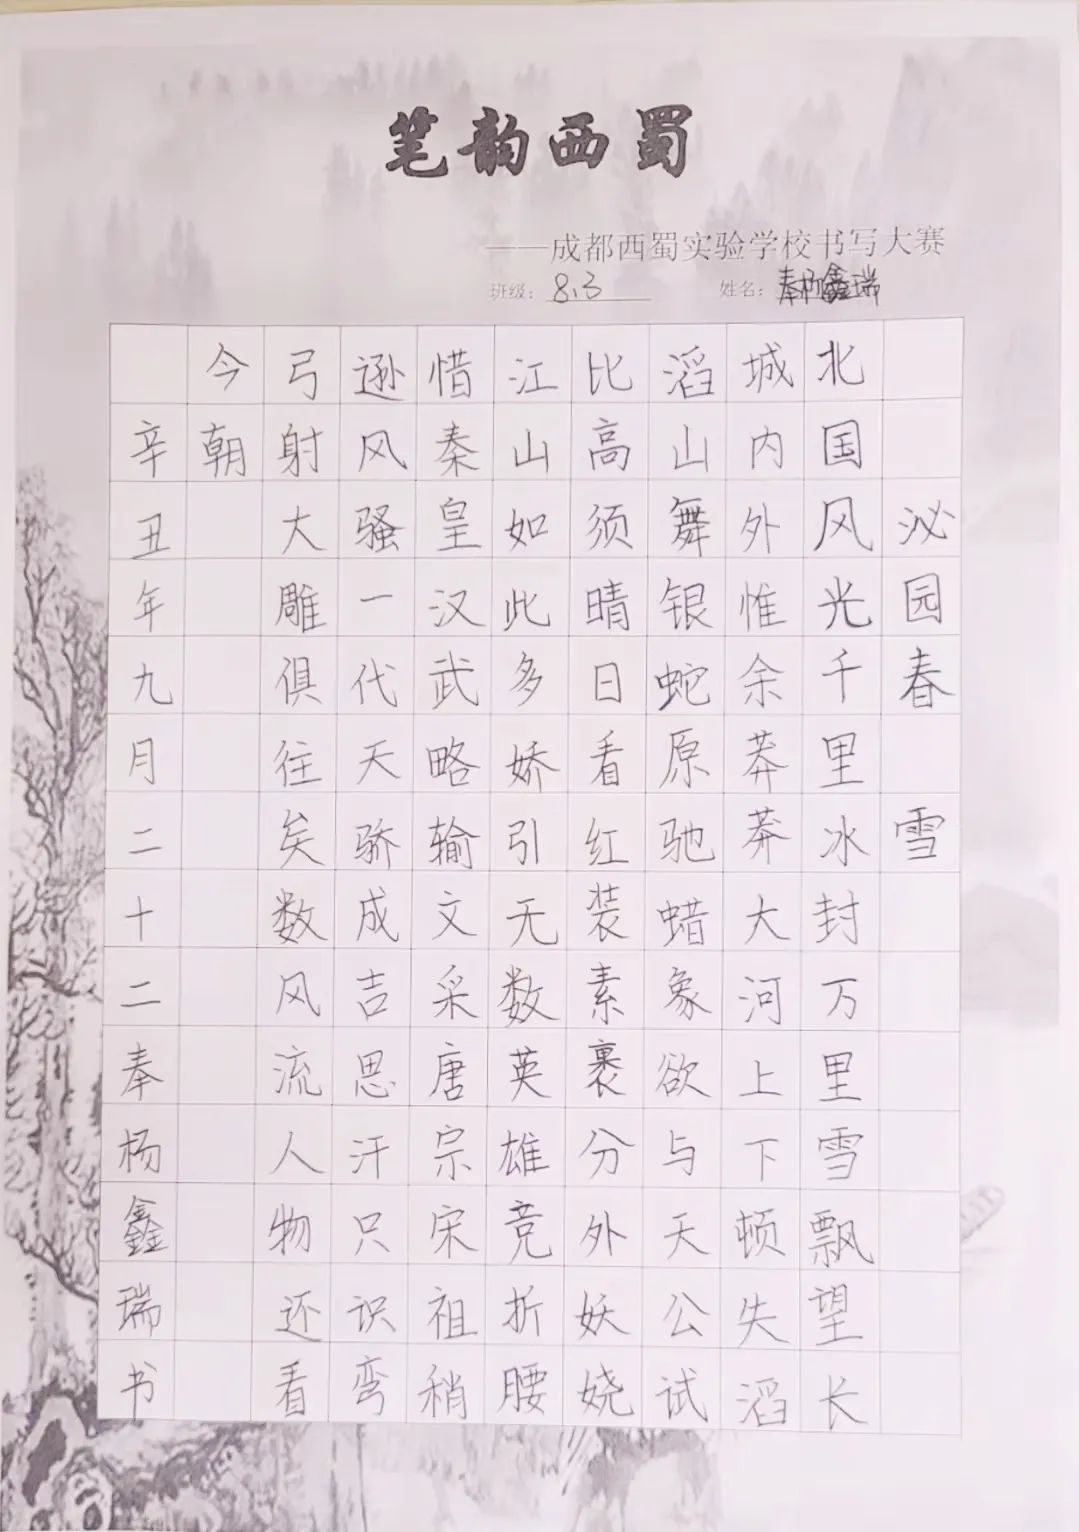 笔韵西蜀
——成都西蜀实验学校书写大赛
班级：8.3 姓名：奉杨鑫瑞
泌园春 雪
北国风光千里冰封万里雪飘望长
城内外惟余莽莽大河上下顿失滔
滔山舞银蛇原驰蜡象欲与天公试
比高须晴日看红装素裹分外妖娆
江山如此多娇引无数英雄竞折腰
惜秦皇汉武略输文采唐宗宋祖稍
逊风骚一代天骄成吉思汗只识弯
弓射大雕俱往矣数风流人物还看
今朝
辛丑年九月二十二奉杨鑫瑞书